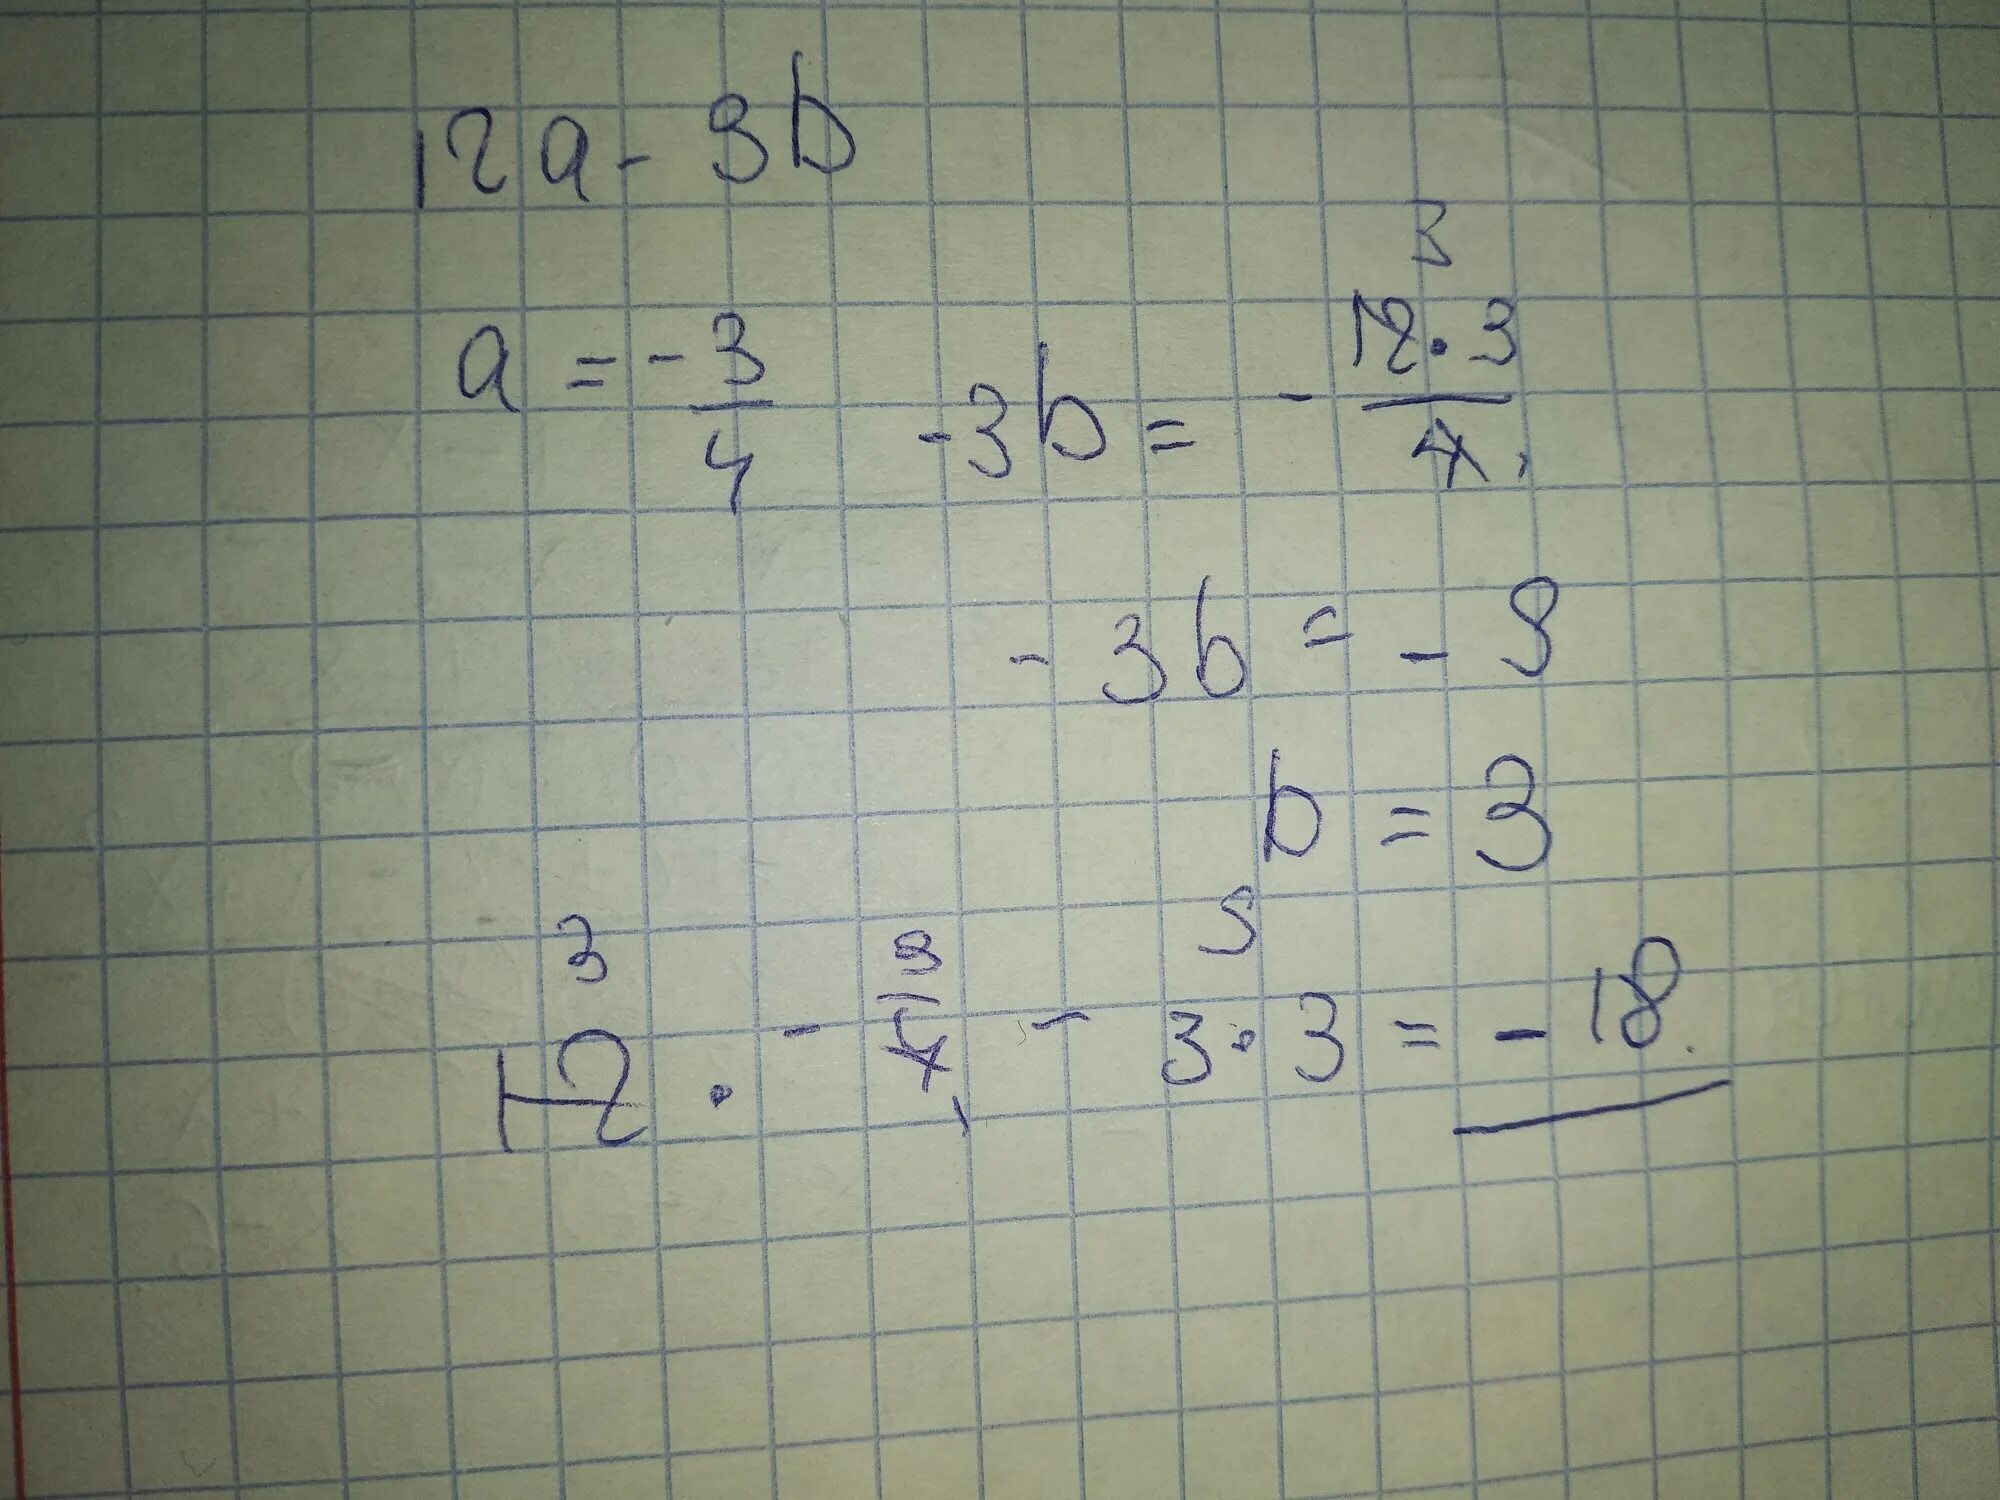 12a - 3b
a = - 3/4   -3b = - 12·3/4
3
-3b = - 9
b = 3
3   9
12 · - 3/4 - 3·3 = - 18